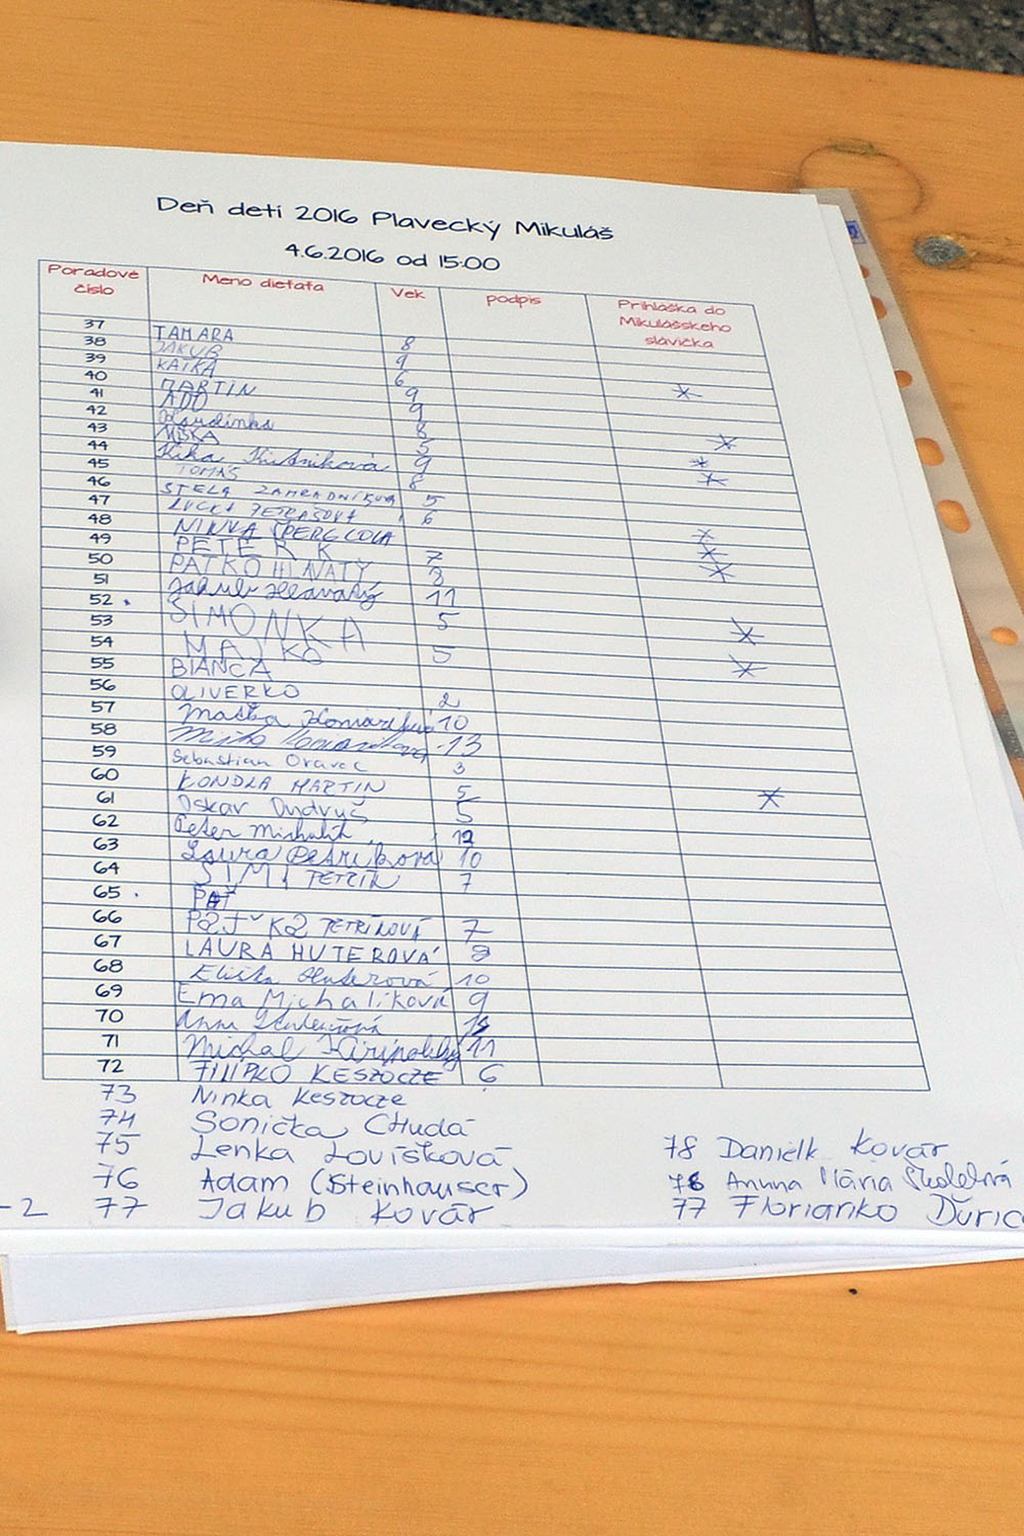 Deň detí 2016 Plavecký Mikuláš
4.6.2016 od 15:00
Poradové číslo Meno dieťaťa Vek podpis Prihláška do Mikulášskeho slávička
37 TAMARA 8
38 JAKUB 9
39 KATKA 6
40 MARTIN 9
41 ADO 9
42 8
43 MIŠKA 5
44 Kika 9
45 TOMÁŠ 8
46 STELA ZAHRADNÍKOVÁ 5
47 6
48 NINKA
49 PETER K 7
50 PAŤKO HLNATÝ 8
51 Jakub 11
52 SIMONKA 5
53 MAJKO 5
54 BIANCA
55 OLIVERKO 2
56 10
57 13
58 Sebastian Oravec 3
59 KONDLA MARTIN 5
60 Oskar Ondruš 5
61 Peter Michalík 12
62 Laura Petríková 10
63 SIMI PETRÍK 7
64
65 PETRÍKOVÁ 7
66 LAURA HUTEROVÁ
67 Eliška Huterová 10
68 Ema Michalíková 9
69 Anna
70 Michal 11
71 FILIPKO KESZOCZE 6
72
73 Ninka Keszocze
74 Sonička Chudá
75 Lenka Lovíšková
76 Adam (Steinhauser)
-2 77 Jakub Kovár
78 Danielk Kovár
Mária
77 Florianko